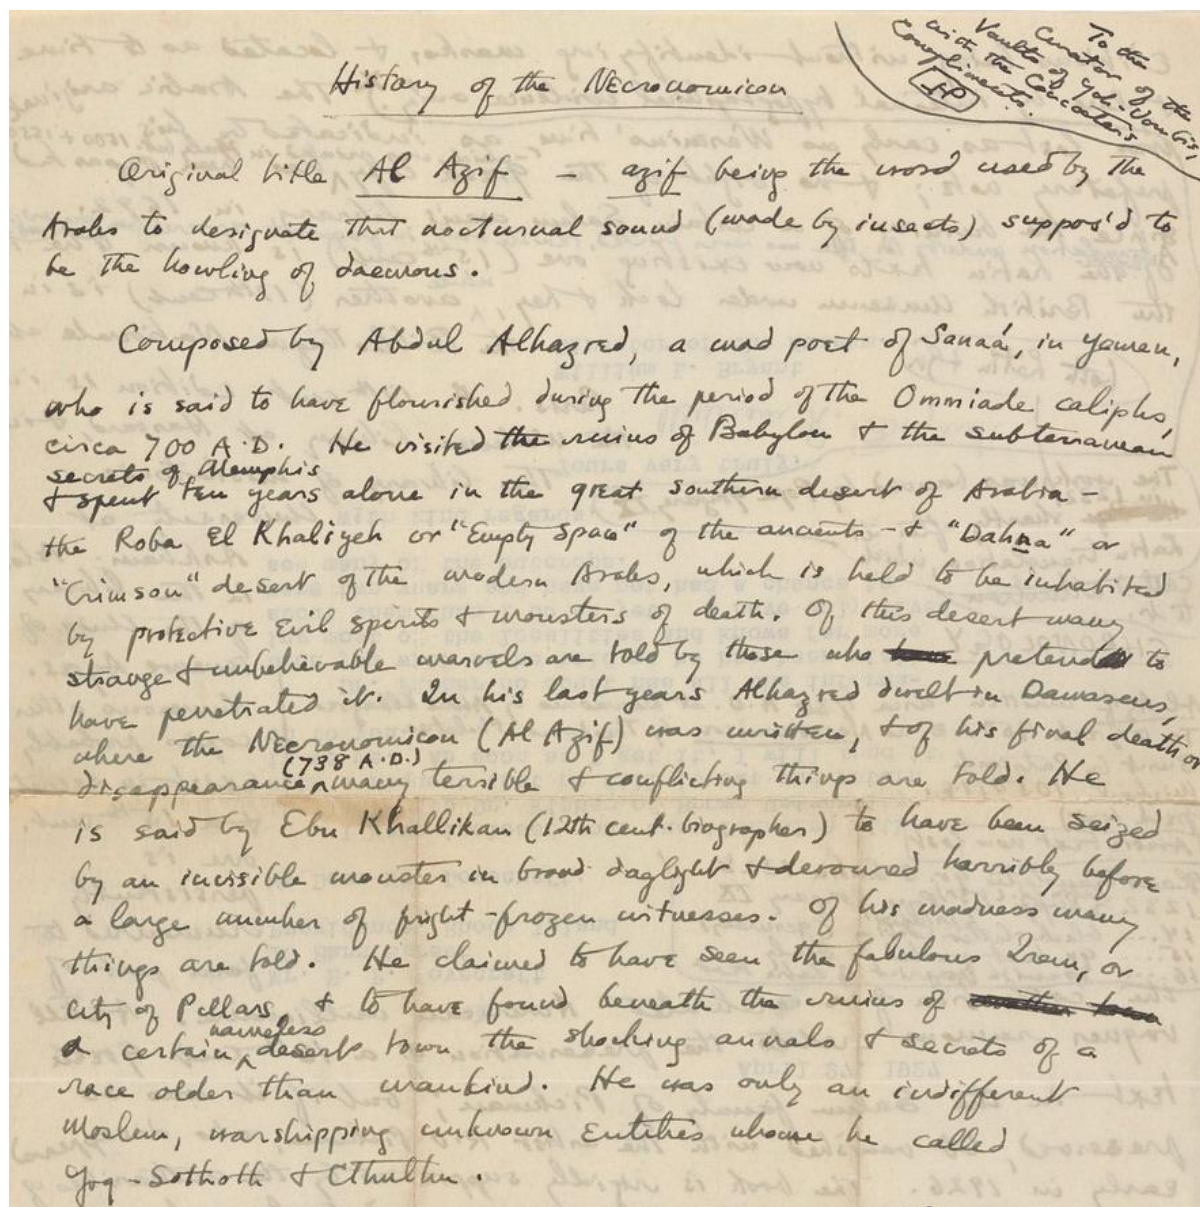 To the
Curator of the
Vaults of Yoh-Vombis,
with the Concocter's
Compliments.
HP
History of the Necronomicon
Original title Al Azif — azif being the word used by the
Arabs to designate that nocturnal sound (made by insects) suppos'd to
be the howling of daemons.
Composed by Abdul Alhazred, a mad poet of Sanaá, in Yemen,
who is said to have flourished during the period of the Ommiade caliphs,
circa 700 A.D. He visited the ruins of Babylon & the subterranean
secrets of Memphis
& spent ten years alone in the great southern desert of Arabia —
the Roba El Khaliyeh or "Empty Space" of the ancients — & "Dahna" or
"Crimson" desert of the modern Arabs, which is held to be inhabited
by protective evil spirits & monsters of death. Of this desert many
strange & unbelievable marvels are told by those who pretend to
have penetrated it. In his last years Alhazred dwelt in Damascus,
where the Necronomicon (Al Azif) was written, & of his final death or
(738 A.D.)
disappearance many terrible & conflicting things are told. He
is said by Ebn Khallikan (12th cent. biographer) to have been seized
by an invisible monster in broad daylight & devoured horribly before
a large number of fright-frozen witnesses. Of his madness many
things are told. He claimed to have seen the fabulous Irem, or
City of Pillars, & to have found beneath the ruins of
nameless
a certain desert town the shocking annals & secrets of a
race older than mankind. He was only an indifferent
Moslem, worshipping unknown Entities whom he called
Yog-Sothoth & Cthulhu.